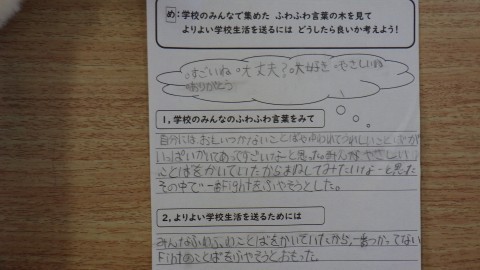 め：学校のみんなで集めた ふわふわ言葉の木を見て
よりよい学校生活を送るには どうしたら良いか考えよう！
すごいね 大丈夫？ 大好き やさしいね
ありがとう
1，学校のみんなのふわふわ言葉をみて
自分には、おもいつかないことばやゆわれてうれしいことばが
いっぱいかいてあってすごいなーと思った。みんなやさしい
ことばをかいていたからまねしてみたいなーと思た
その中で一番Fightをふやそうとした。
2，よりよい学校生活を送るためには
みんなふわふわことばをかいていたから、一番つかってない
Fihtのことばをふやそうとおもった。